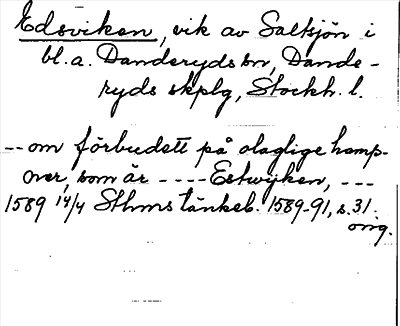 Edsviken, vik av Saltsjön i
bl.a. Danderyds sn, Dande-
ryds skplg, Stockh. l.
-- om förbudett på olaglige hamp-
ner, som är ---- Estwijken, ---
1589 14/4 Sthms tänkeb. 1589-91, s. 31.
orig.